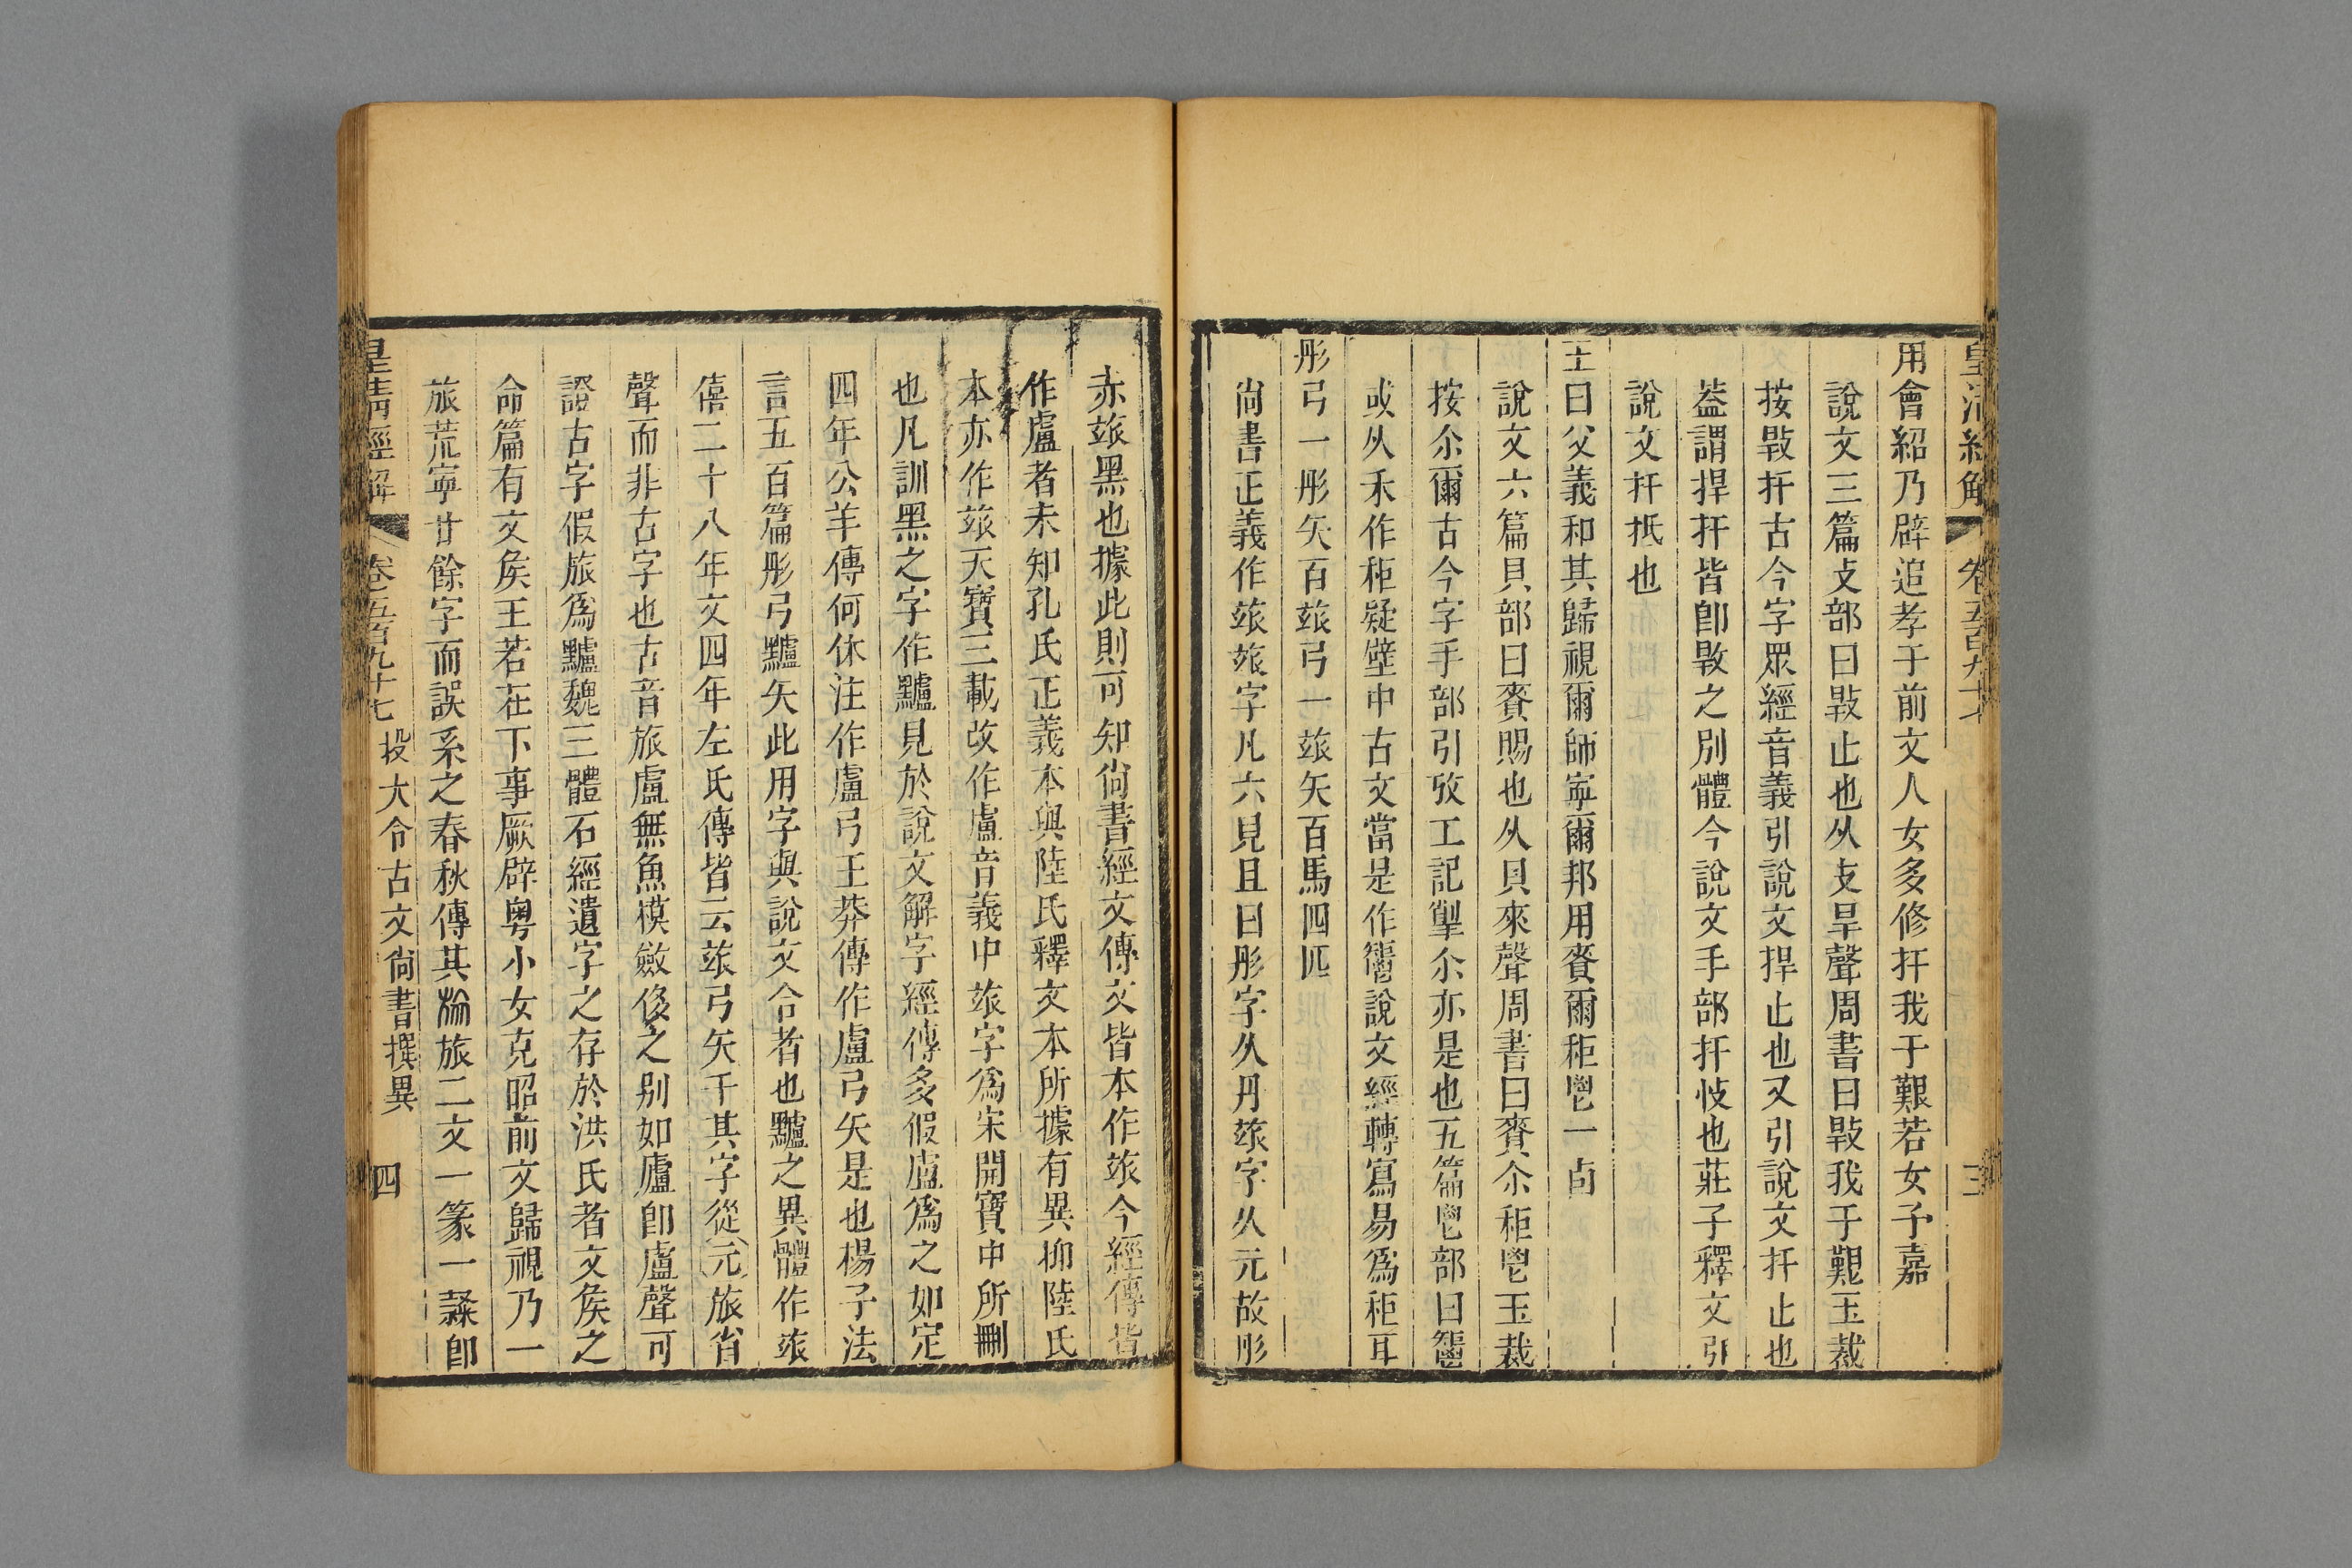 皇清經解 卷五百九十七 三
用會紹乃辟追孝于前文人女多修扞我于艱若女予嘉
說文三篇攴部曰敤止也从攴旱聲周書曰敤我于艱玉裁
按敤扞古今字眾經音義引說文捍止也又引說文扞止也
葢謂捍扞皆卽敤之別體今說文手部扞忮也莊子釋文引
說文扞抵也
王曰父義和其歸視爾師寧爾邦用賚爾秬鬯一卣
說文六篇貝部曰賚賜也从貝來聲周書曰賚尒秬鬯玉裁
按尒爾古今字手部引攷工記掣尒亦是也五篇鬯部曰𩰪
或从禾作秬疑壁中古文當是作𩰪說文經轉寫易爲秬耳
彤弓一彤矢百玈弓一玈矢百馬四匹
尙書正義作玈玈字凡六見且曰彤字从丹玈字从元故彤
赤玈黑也據此則可知尙書經文傳文皆本作玈今經傳皆
作盧者未知孔氏正義本與陸氏釋文本所據有異抑陸氏
本亦作玈天寶三載改作盧音義中玈字爲宋開寶中所刪
也凡訓黑之字作黸見於說文解字經傳多假盧爲之如定
四年公羊傳何休注作盧弓王莽傳作盧弓矢是也楊子法
言五百篇彤弓黸矢此用字與說文合者也黸之異體作玈
僖二十八年文四年左氏傳皆云玈弓矢千其字從元旅省
聲而非古字也古音旅盧無魚模斂侈之別如廬卽盧聲可
證古字假旅爲黸魏三體石經遺字之存於洪氏者文矦之
命篇有文矦王若在下事厥辟粵小女克昭前文歸視乃一
旅荒寧廿餘字而誤系之春秋傳其𣃨旅二文一篆一隸卽
皇淸經解 卷五百九十七 段大令古文尙書撰異 四